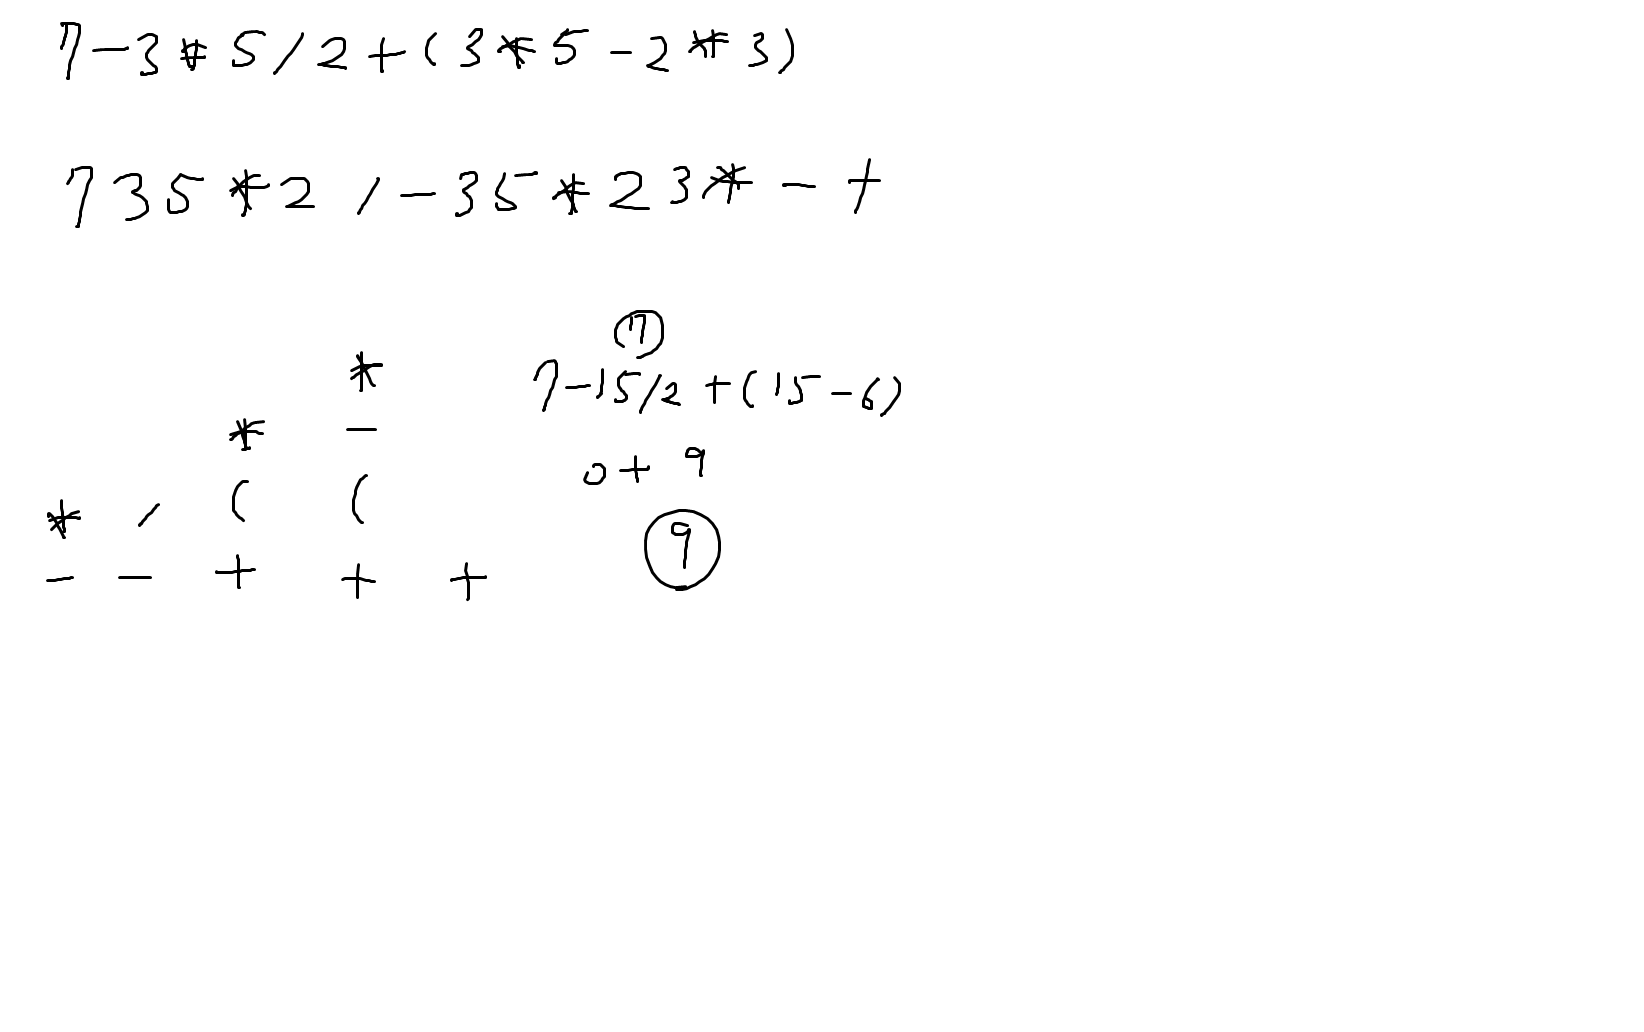 7-3*5/2+(3*5-2*3)
735*2/-35*23*-+
7
* 7-15/2+(15-6)
* -
0+9
* / ( (
9
- - + + +